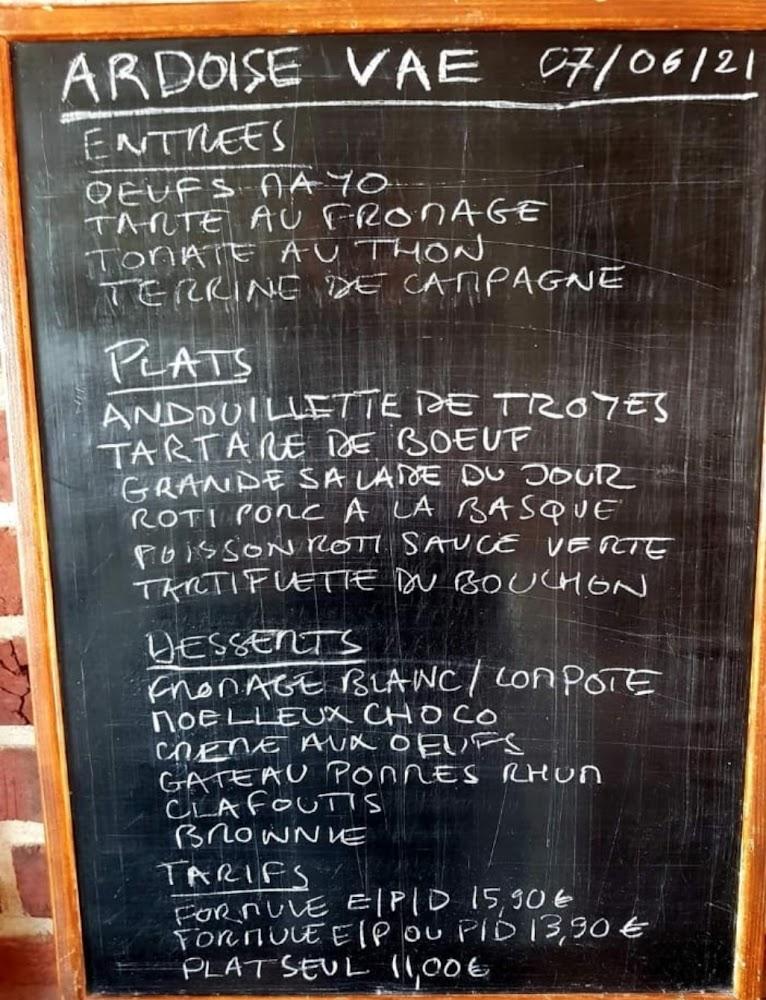 ARDOISE VAE 07/06/21
ENTREES
OEUFS MAYO
TARTE AU FROMAGE
TOMATE AU THON
TERRINE DE CAMPAGNE
PLATS
ANDOUILLETTE DE TROYES
TARTARE DE BOEUF
GRANDE SALADE DU JOUR
ROTI PORC A LA BASQUE
POISSON ROTI SAUCE VERTE
TARTIFLETTE DU BOUCHON
DESSERTS
FROMAGE BLANC/COMPOTE
MOELLEUX CHOCO
CREME AUX OEUFS
GATEAU POMMES RHUM
CLAFOUTIS
BROWNIE
TARIFS
FORMULE E|P|D 15,90€
FORMULE E|P OU P|D 13,90€
PLAT SEUL 11,00€